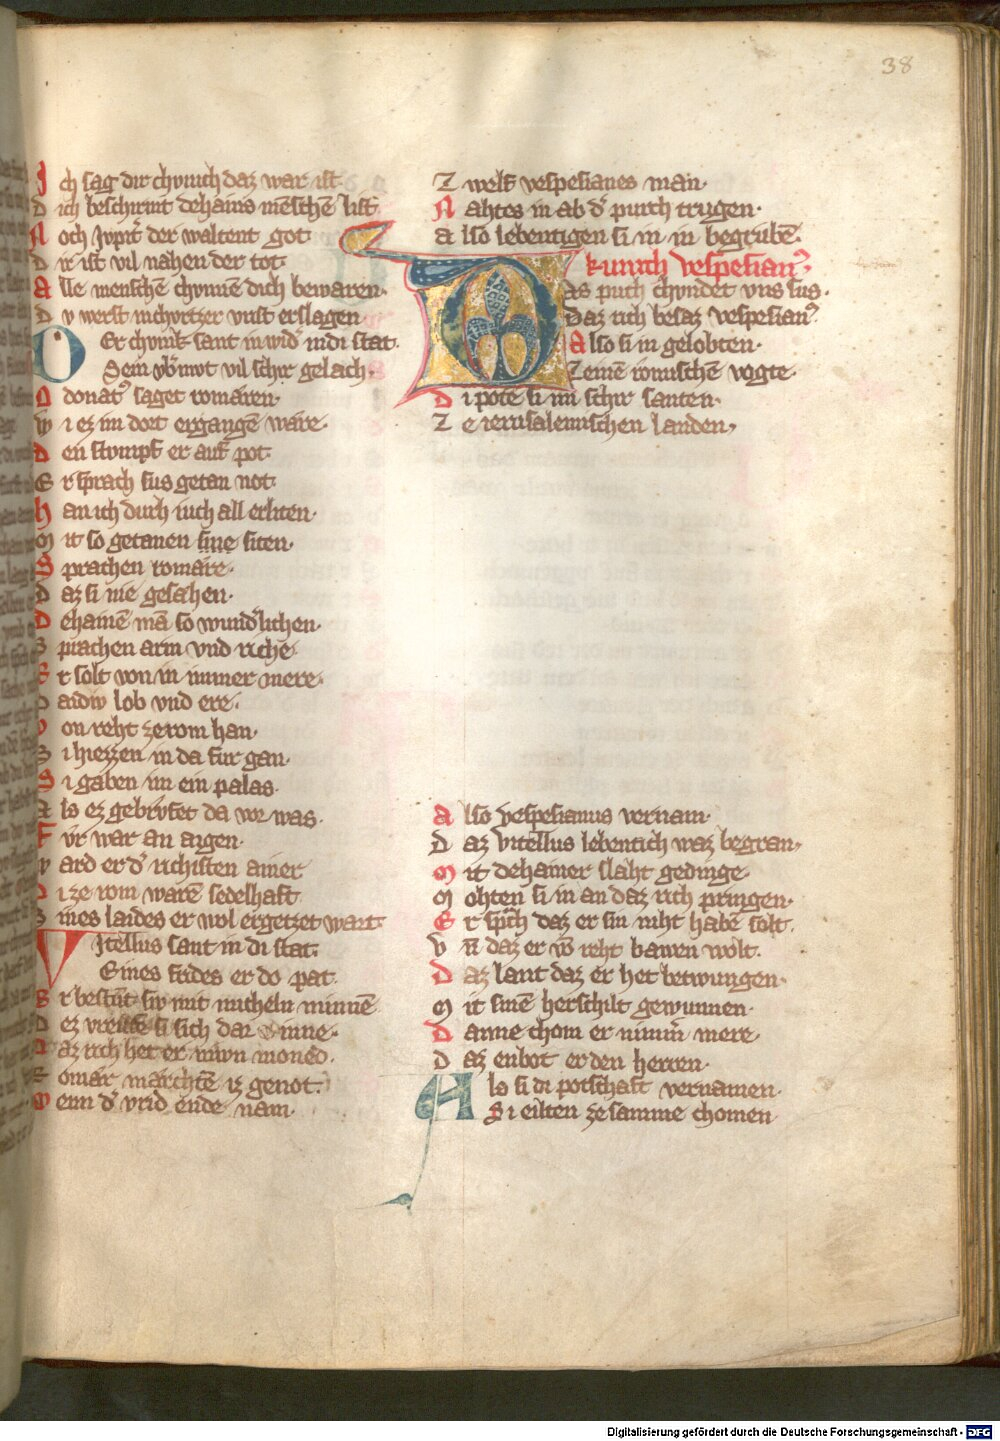 38
Ich sag dir chvnich daz war ist
Dich beschirmt dehains mēschē list
Noch Jvpit͛ der waltent got
Dir ist vil nahen der tot
Alle menschē chvnnē dich bewaren·
Dv werst in chvrtzer vrist erslagen
Der chvnik sant in wid͛ in di stat·
Sein vb͛mvt vil schir gelach·
Odonat͛ saget romären·
Wi ez im dort ergangē wäre·
Den stvmpf er auf pot
Er sprach sus getan not
han ich durh iuch all erliten·
Mit so getanen sinne siten·
Sprachen romäre·
Daz si nie gesahen·
Dehainē mā so wund͛lichen·
Sprachen arm vnd richē·
Er solt von in immer mere·
Paidiv lob vnd ere·
Von reht ze rom han·
Si hiezzen in da fur gan·
Si gaben im ein palas·
Als ez gebrvfet da vor was·
Fvr war an aigen·
Ward er d͛ richisten ainer
Di ze rom warē sedelhaft
Sines landes er wol ergetzet wart
Vitellus sant in di stat·
Eines frides er do pat·
Daz rich het er niwn moned·
Romär marchtē iz genot·
Zwelf vespesianes man·
Nahtes in ab d͛ purch trugen·
also lebentigen si in in begrubē·
kunich vespesian͛·
Das puch chvndet vns sus·
Daz rich besaz vespesian͛
Also si in gelobten·
Zeinē romischē vogte·
Di pote si im schir santen·
Ze ierusalemischen landen·
Also vespesianus vernam·
Daz vitellus lebentich waz begran·
Mit dehainer slaht gedinge·
Mohten si in an daz rich pringen·
Er sp͛ch daz er sin niht habē solt·
Vn̄ daz er iv͛ reht bawen wolt·
Daz lant daz er het betwungen·
Mit sinē herschilt gewunnen·
Danne chom er nimm͛ mere·
Daz enbot er den herren·
Als si di potschaft vernamen·
Si eilten ze samme chomen
Digitalisierung gefördert durch die Deutsche Forschungsgemeinschaft - DFG